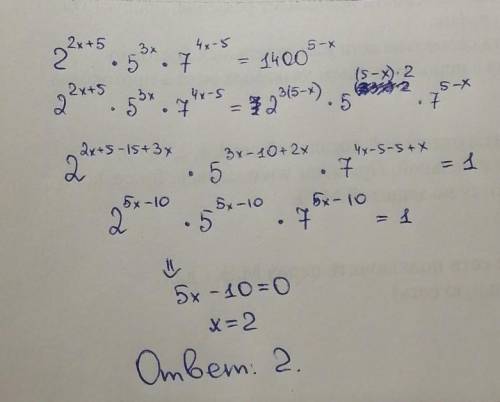 2^{2x+5} · 5^{3x} · 7^{4x-5} = 1400^{5-x}
2^{2x+5} · 5^{3x} · 7^{4x-5} = 2^{3(5-x)} · 5^{(5-x)·2} · 7^{5-x}
2^{2x+5-15+3x} · 5^{3x-10+2x} · 7^{4x-5-5+x} = 1
2^{5x-10} · 5^{5x-10} · 7^{5x-10} = 1
⇓
5x-10=0
x=2
Ответ: 2.